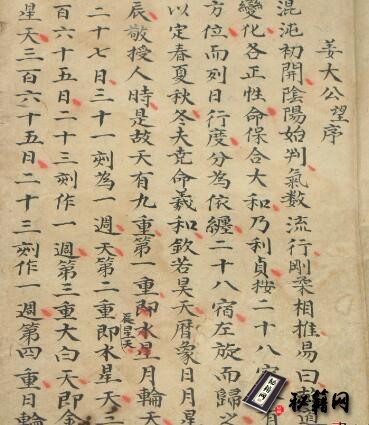 姜大公望序
混沌初開陰陽始判氣数流行剛柔相推易曰道
變化各正性命保合大和乃利貞按二十八有
方位而刻日行度分為依纏二十八宿左旋而歸之
以定春夏秋冬夫命羲和欽若昊天曆象日月星
辰敬授人時是故天有九重第一重即水星月輪天
二十七日三十一刻為一週天第二重即水星天三
辰星天
百六十五日二十三刻作一週第三重大白天即金
星天三百六十五日二十三刻作一週第四重日輪
秘籍网